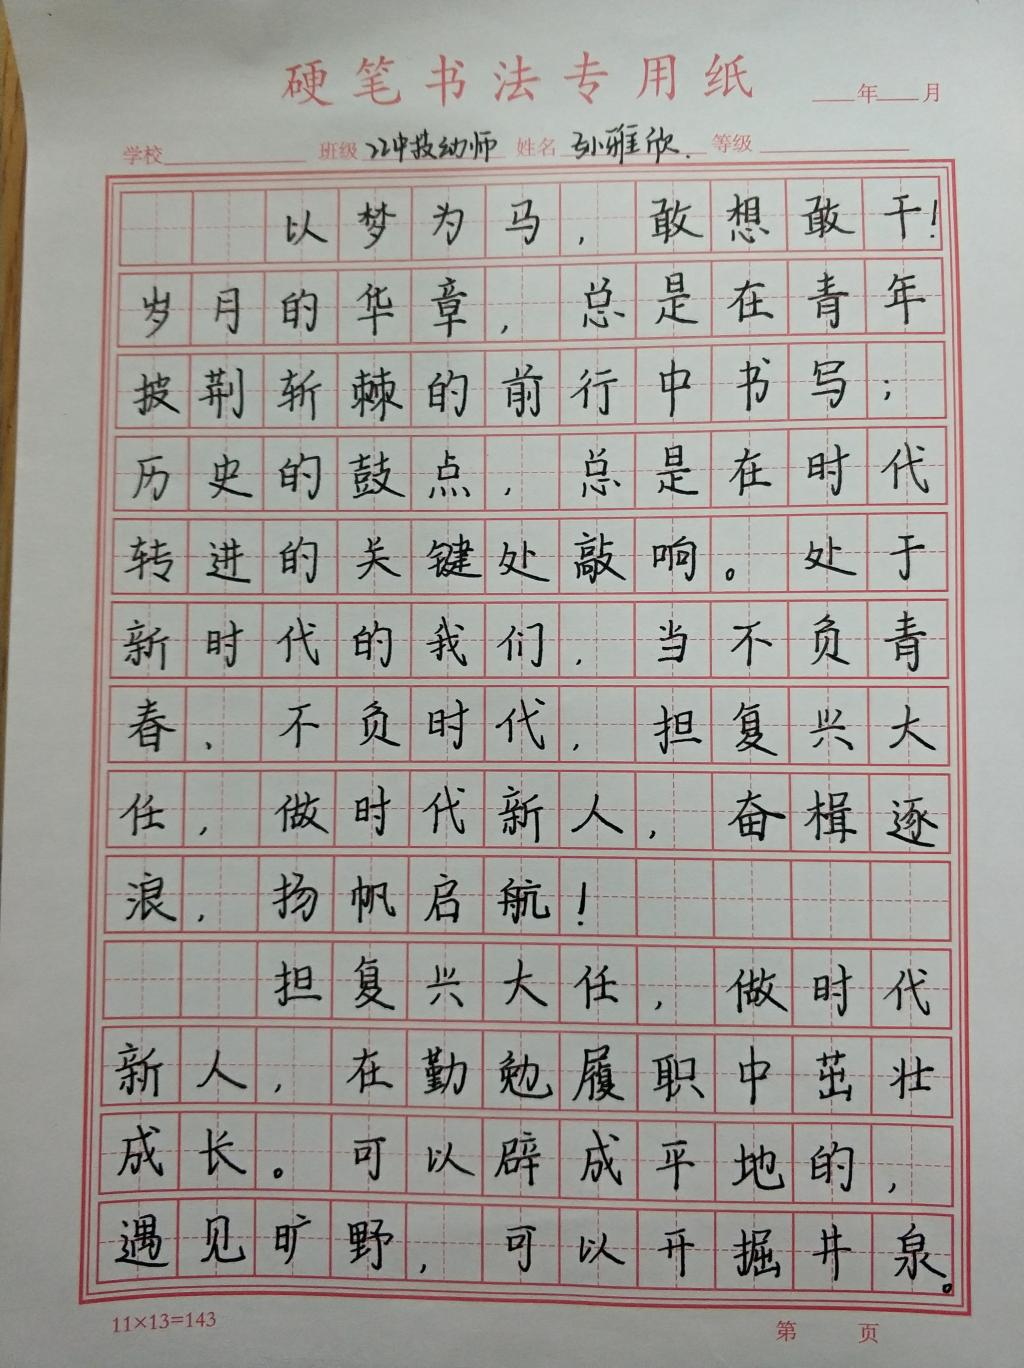 硬笔书法专用纸
年 月
学校 班级 22中技幼师 姓名 孙雅欣. 等级
以梦为马，敢想敢干！
岁月的华章，总是在青年
披荆斩棘的前行中书写；
历史的鼓点，总是在时代
转进的关键处敲响。处于
新时代的我们，当不负青
春、不负时代，担复兴大
任，做时代新人，奋楫逐
浪，扬帆启航！
担复兴大任，做时代
新人，在勤勉履职中茁壮
成长。可以辟成平地的，
遇见旷野，可以开掘井泉。
11×13=143
第 页